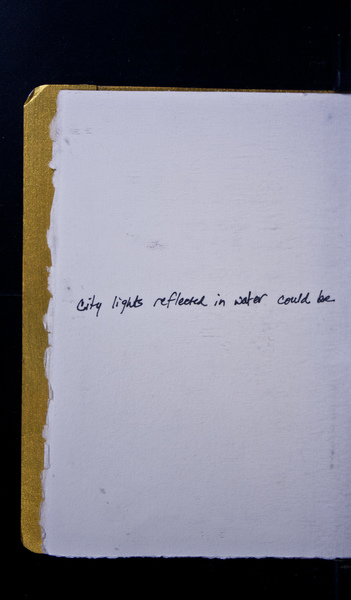 City lights reflected in water could be